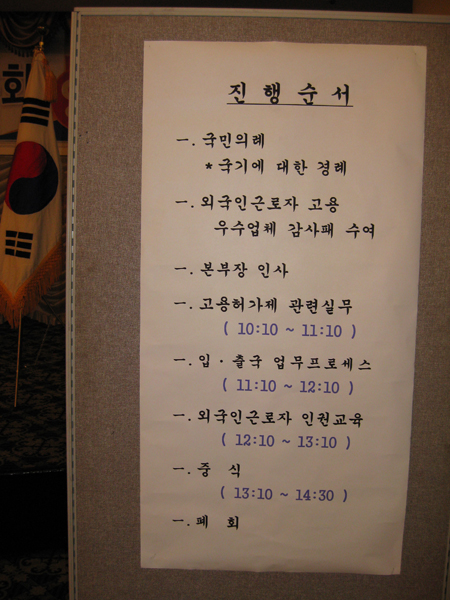 회
진 행 순 서
一. 국민의례
* 국기에 대한 경례
一. 외국인근로자 고용
우수업체 감사패 수여
一. 본부장 인사
一. 고용허가제 관련실무
( 10:10 ~ 11:10 )
一. 입 · 출국 업무프로세스
( 11:10 ~ 12:10 )
一. 외국인근로자 인권교육
( 12:10 ~ 13:10 )
一. 중 식
( 13:10 ~ 14:30 )
一. 폐 회